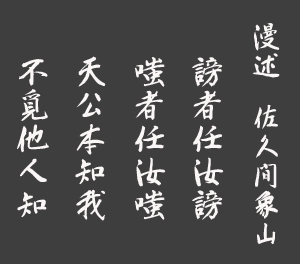 漫述 佐久间象山
謗者任汝謗
嗤者任汝嗤
天公本知我
不覓他人知